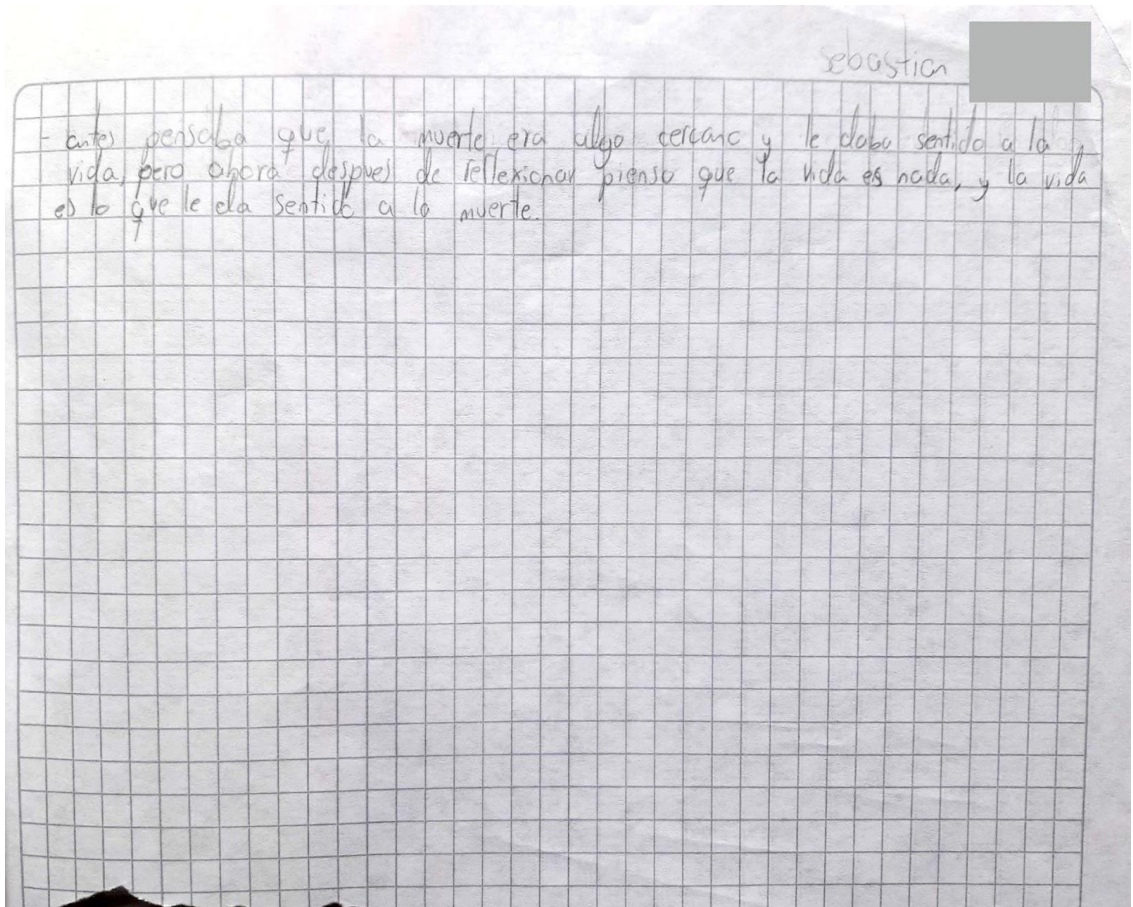 sebastian
- antes pensaba que la muerte era algo cercano y le daba sentido a la
vida, pero ahora despues de reflexionar pienso que la vida es nada, y la vida
es lo que le da sentido a la muerte.